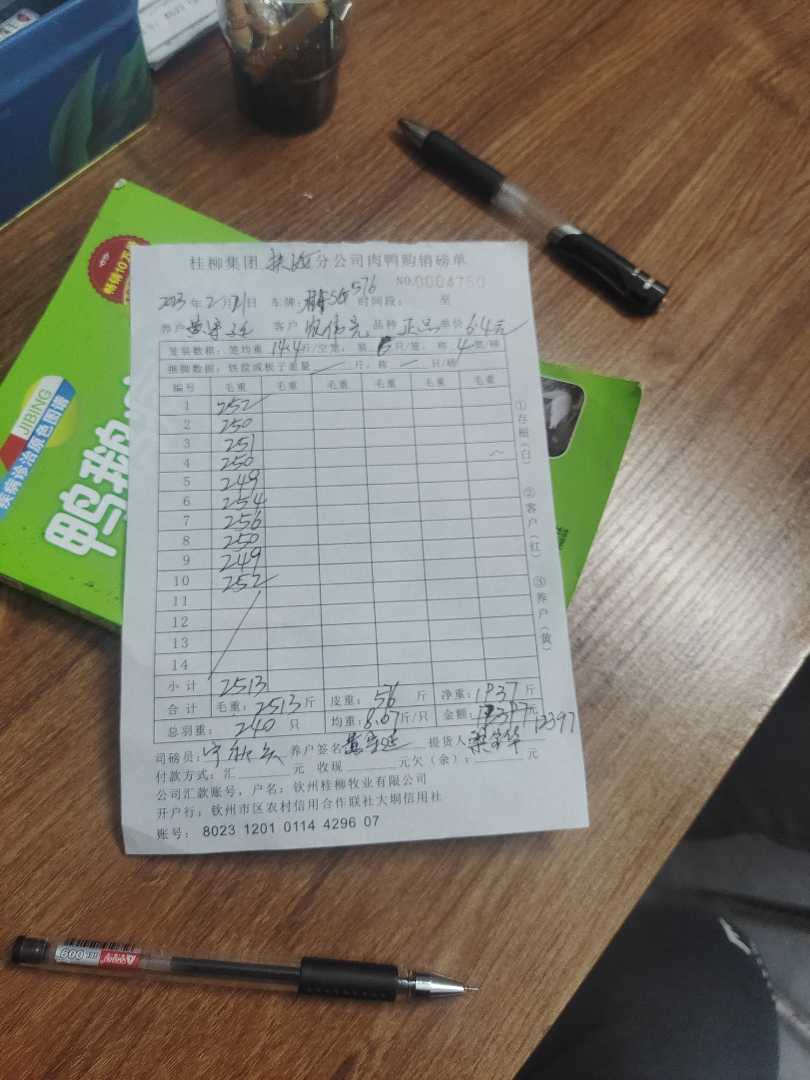 桂柳集团 分公司肉鸭购销磅单
NO.0004750
2023年2月21日 车牌: 576 时间段: 至
养户 客户 品种 正品 单价 6.4元
笼装数据: 笼均重 14.4斤/空笼, 装 6只/笼, 称 4笼/磅
捆脚数据: 铁筐或板子重量 斤, 称 只/磅
编号 毛重 毛重 毛重 毛重 毛重 毛重
1 252
2 250
3 251
4 250
5 249
6 254
7 256
8 250
9 249
10 252
11
12
13
14
小计 2513
合计 毛重: 2513斤 皮重: 576 斤 净重: 1937 斤
总羽重: 240 只 均重: 8.07斤/只 金额: 12397元 12397
司磅员: 养户签名 提货人
付款方式: 汇 元 收现 元欠(余): 元
公司汇款账号, 户名: 钦州桂柳牧业有限公司
开户行: 钦州市区农村信用合作联社大垌信用社
账号: 8023 1201 0114 4296 07
①存根(白)
②客户(红)
③养户(黄)
JIBING
疾病诊治原色图谱
鸭鹅
畅销10万